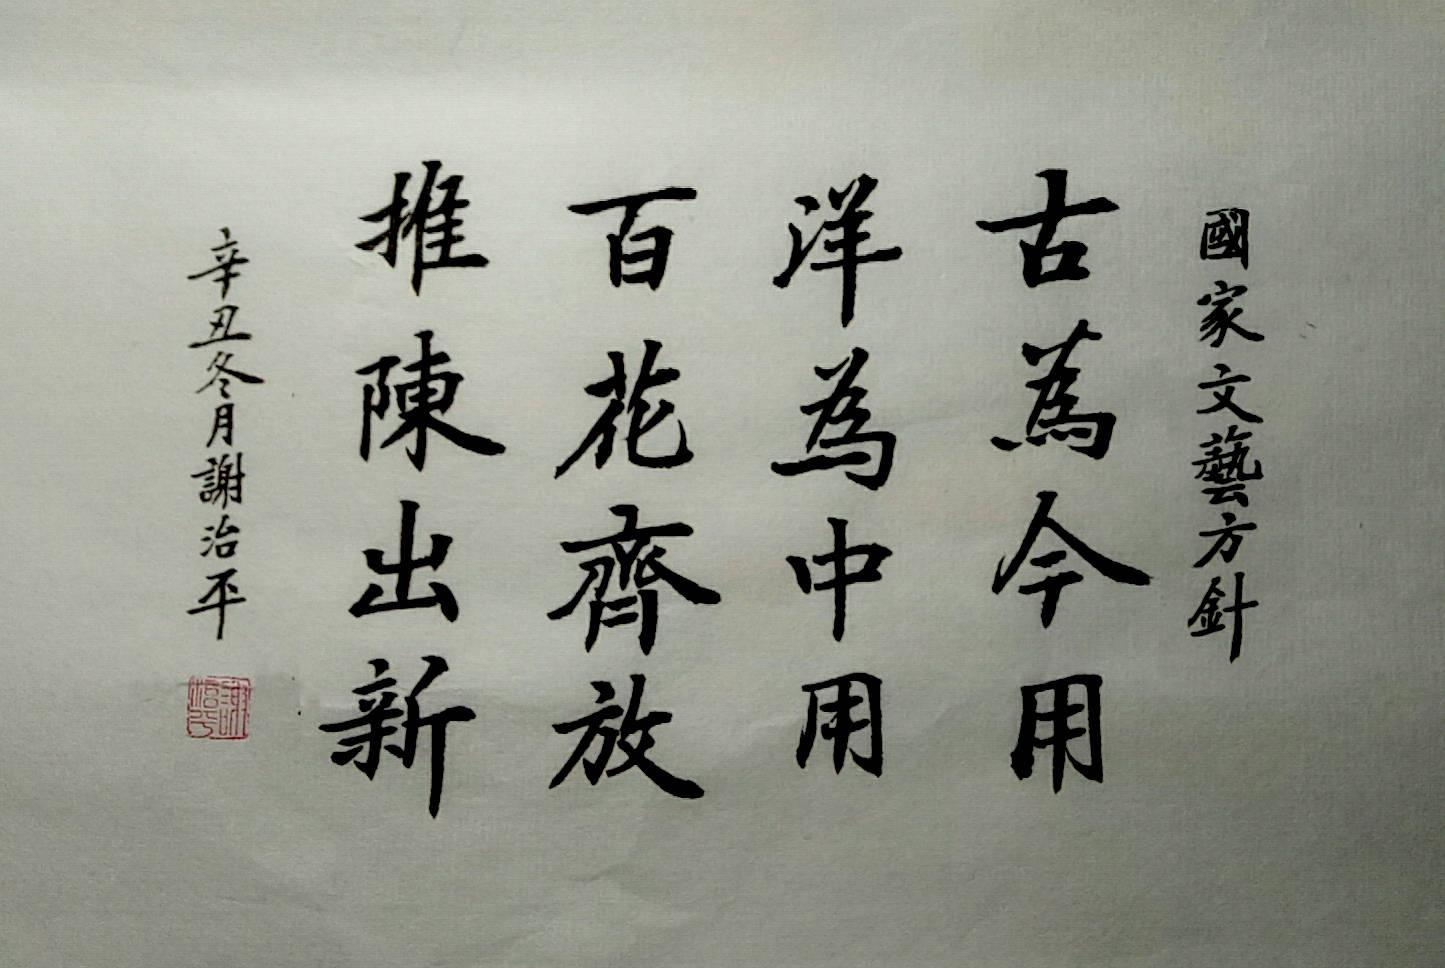 國家文藝方針
古為今用
洋為中用
百花齊放
推陳出新
辛丑冬月謝治平
謝治平